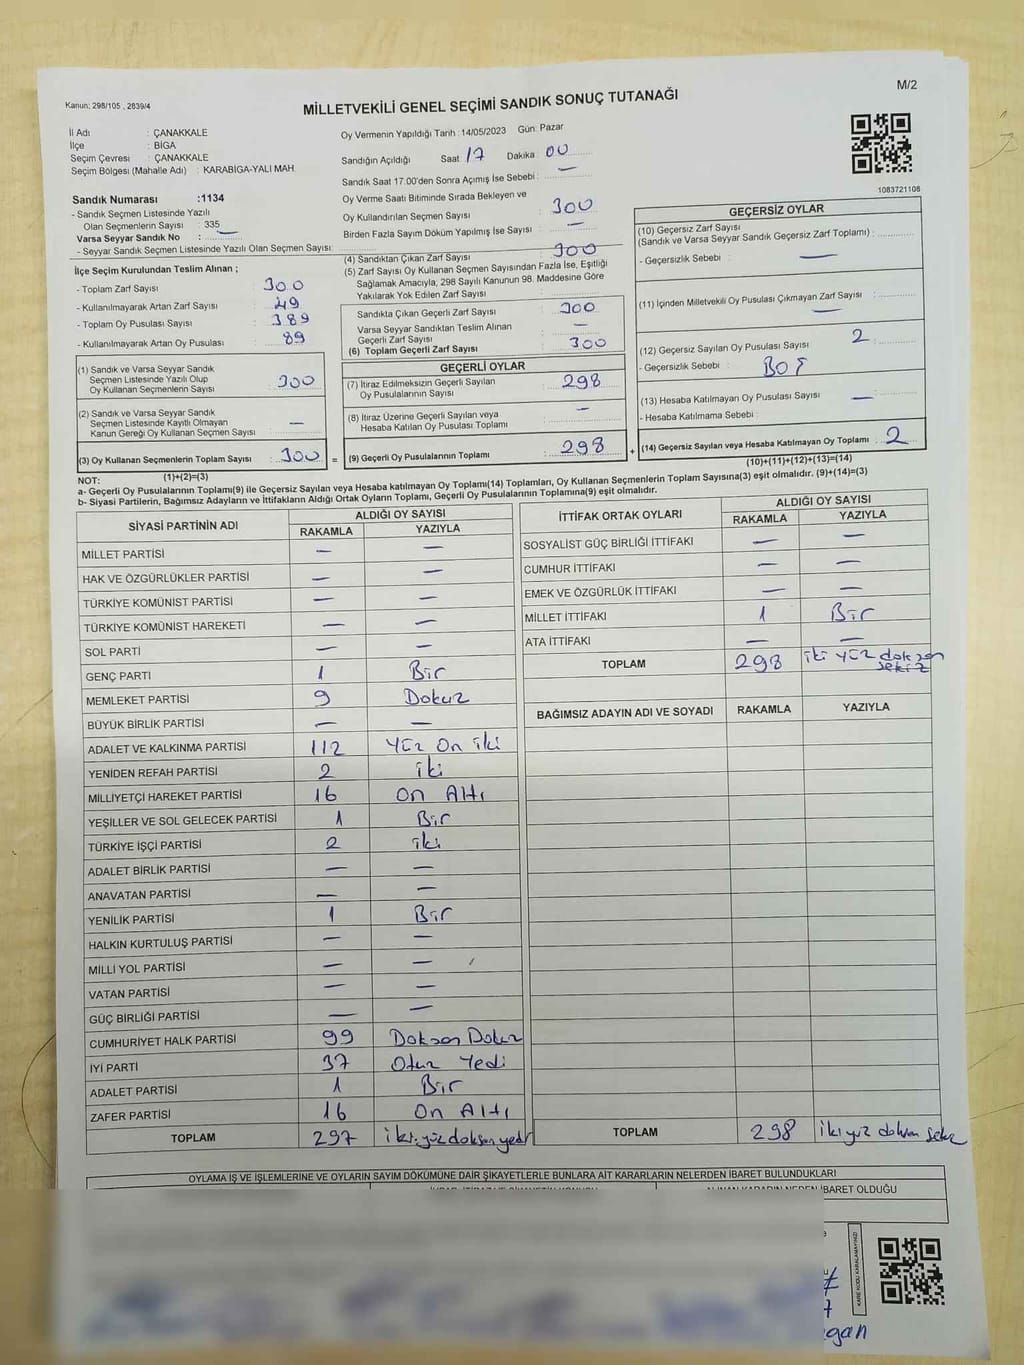 M/2
Kanun: 298/105 , 2839/4
MİLLETVEKİLİ GENEL SEÇİMİ SANDIK SONUÇ TUTANAĞI
İl Adı : ÇANAKKALE
İlçe : BİGA
Seçim Çevresi : ÇANAKKALE
Seçim Bölgesi (Mahalle Adı) : KARABİGA-YALI MAH.
Oy Vermenin Yapıldığı Tarih : 14/05/2023 Gün: Pazar
Sandığın Açıldığı Saat 17 Dakika 00
Sandık Saat 17.00'den Sonra Açımış İse Sebebi : —
Oy Verme Saati Bitiminde Sırada Bekleyen ve
Oy Kullandırılan Seçmen Sayısı : 300
Birden Fazla Sayım Döküm Yapılmış İse Sayısı : —
1083721108
Sandık Numarası :1134
- Sandık Seçmen Listesinde Yazılı
Olan Seçmenlerin Sayısı : 335
Varsa Seyyar Sandık No : —
- Seyyar Sandık Seçmen Listesinde Yazılı Olan Seçmen Sayısı:
İlçe Seçim Kurulundan Teslim Alınan ;
- Toplam Zarf Sayısı : 300
- Kullanılmayarak Artan Zarf Sayısı : 49
- Toplam Oy Pusulası Sayısı : 389
- Kullanılmayarak Artan Oy Pusulası : 89
(1) Sandık ve Varsa Seyyar Sandık
Seçmen Listesinde Yazılı Olup
Oy Kullanan Seçmenlerin Sayısı : 300
(2) Sandık ve Varsa Seyyar Sandık
Seçmen Listesinde Kayıtlı Olmayan
Kanun Gereği Oy Kullanan Seçmen Sayısı : —
(3) Oy Kullanan Seçmenlerin Toplam Sayısı : 300
(1)+(2)=(3)
(4) Sandıktan Çıkan Zarf Sayısı : 300
(5) Zarf Sayısı Oy Kullanan Seçmen Sayısından Fazla İse, Eşitliği
Sağlamak Amacıyla, 298 Sayılı Kanunun 98. Maddesine Göre
Yakılarak Yok Edilen Zarf Sayısı :
Sandıkta Çıkan Geçerli Zarf Sayısı : 300
Varsa Seyyar Sandıktan Teslim Alınan
Geçerli Zarf Sayısı : —
(6) Toplam Geçerli Zarf Sayısı : 300
GEÇERLİ OYLAR
(7) İtiraz Edilmeksizin Geçerli Sayılan
Oy Pusulalarının Sayısı : 298
(8) İtiraz Üzerine Geçerli Sayılan veya
Hesaba Katılan Oy Pusulası Toplamı : —
= (9) Geçerli Oy Pusulalarının Toplamı : 298 +
GEÇERSİZ OYLAR
(10) Geçersiz Zarf Sayısı
(Sandık ve Varsa Seyyar Sandık Geçersiz Zarf Toplamı) :
- Geçersizlik Sebebi : —
(11) İçinden Milletvekili Oy Pusulası Çıkmayan Zarf Sayısı : —
(12) Geçersiz Sayılan Oy Pusulası Sayısı : 2
- Geçersizlik Sebebi : BOŞ
(13) Hesaba Katılmayan Oy Pusulası Sayısı : —
- Hesaba Katılmama Sebebi :
(14) Geçersiz Sayılan veya Hesaba Katılmayan Oy Toplamı : 2
(10)+(11)+(12)+(13)=(14)
NOT:
a- Geçerli Oy Pusulalarının Toplamı(9) ile Geçersiz Sayılan veya Hesaba katılmayan Oy Toplamı(14) Toplamları, Oy Kullanan Seçmenlerin Toplam Sayısına(3) eşit olmalıdır. (9)+(14)=(3)
b- Siyasi Partilerin, Bağımsız Adayların ve İttifakların Aldığı Ortak Oyların Toplamı, Geçerli Oy Pusulalarının Toplamına(9) eşit olmalıdır.
SİYASİ PARTİNİN ADI ALDIĞI OY SAYISI
RAKAMLA YAZIYLA
MİLLET PARTİSİ — —
HAK VE ÖZGÜRLÜKLER PARTİSİ — —
TÜRKİYE KOMÜNİST PARTİSİ — —
TÜRKİYE KOMÜNİST HAREKETİ — —
SOL PARTİ — —
GENÇ PARTİ 1 Bir
MEMLEKET PARTİSİ 9 Dokuz
BÜYÜK BİRLİK PARTİSİ — —
ADALET VE KALKINMA PARTİSİ 112 Yüz On iki
YENİDEN REFAH PARTİSİ 2 iki
MİLLİYETÇİ HAREKET PARTİSİ 16 On Altı
YEŞİLLER VE SOL GELECEK PARTİSİ 1 Bir
TÜRKİYE İŞÇİ PARTİSİ 2 iki
ADALET BİRLİK PARTİSİ — —
ANAVATAN PARTİSİ — —
YENİLİK PARTİSİ 1 Bir
HALKIN KURTULUŞ PARTİSİ — —
MİLLİ YOL PARTİSİ — —
VATAN PARTİSİ — —
GÜÇ BİRLİĞİ PARTİSİ — —
CUMHURİYET HALK PARTİSİ 99 Doksan Dokuz
İYİ PARTİ 37 Otuz Yedi
ADALET PARTİSİ 1 Bir
ZAFER PARTİSİ 16 On Altı
TOPLAM 297 iki yüz doksan yedi
İTTİFAK ORTAK OYLARI ALDIĞI OY SAYISI
RAKAMLA YAZIYLA
SOSYALİST GÜÇ BİRLİĞİ İTTİFAKI — —
CUMHUR İTTİFAKI — —
EMEK VE ÖZGÜRLÜK İTTİFAKI — —
MİLLET İTTİFAKI 1 Bir
ATA İTTİFAKI — —
TOPLAM 298 iki yüz doksan sekiz
BAĞIMSIZ ADAYIN ADI VE SOYADI RAKAMLA YAZIYLA
TOPLAM 298 iki yüz doksan sekiz
OYLAMA İŞ VE İŞLEMLERİNE VE OYLARIN SAYIM DÖKÜMÜNE DAİR ŞİKAYETLERLE BUNLARA AİT KARARLARIN NELERDEN İBARET BULUNDUKLARI
ALINAN KARARIN NEDEN İBARET OLDUĞU
KARE KODU KARALAMAYINIZ